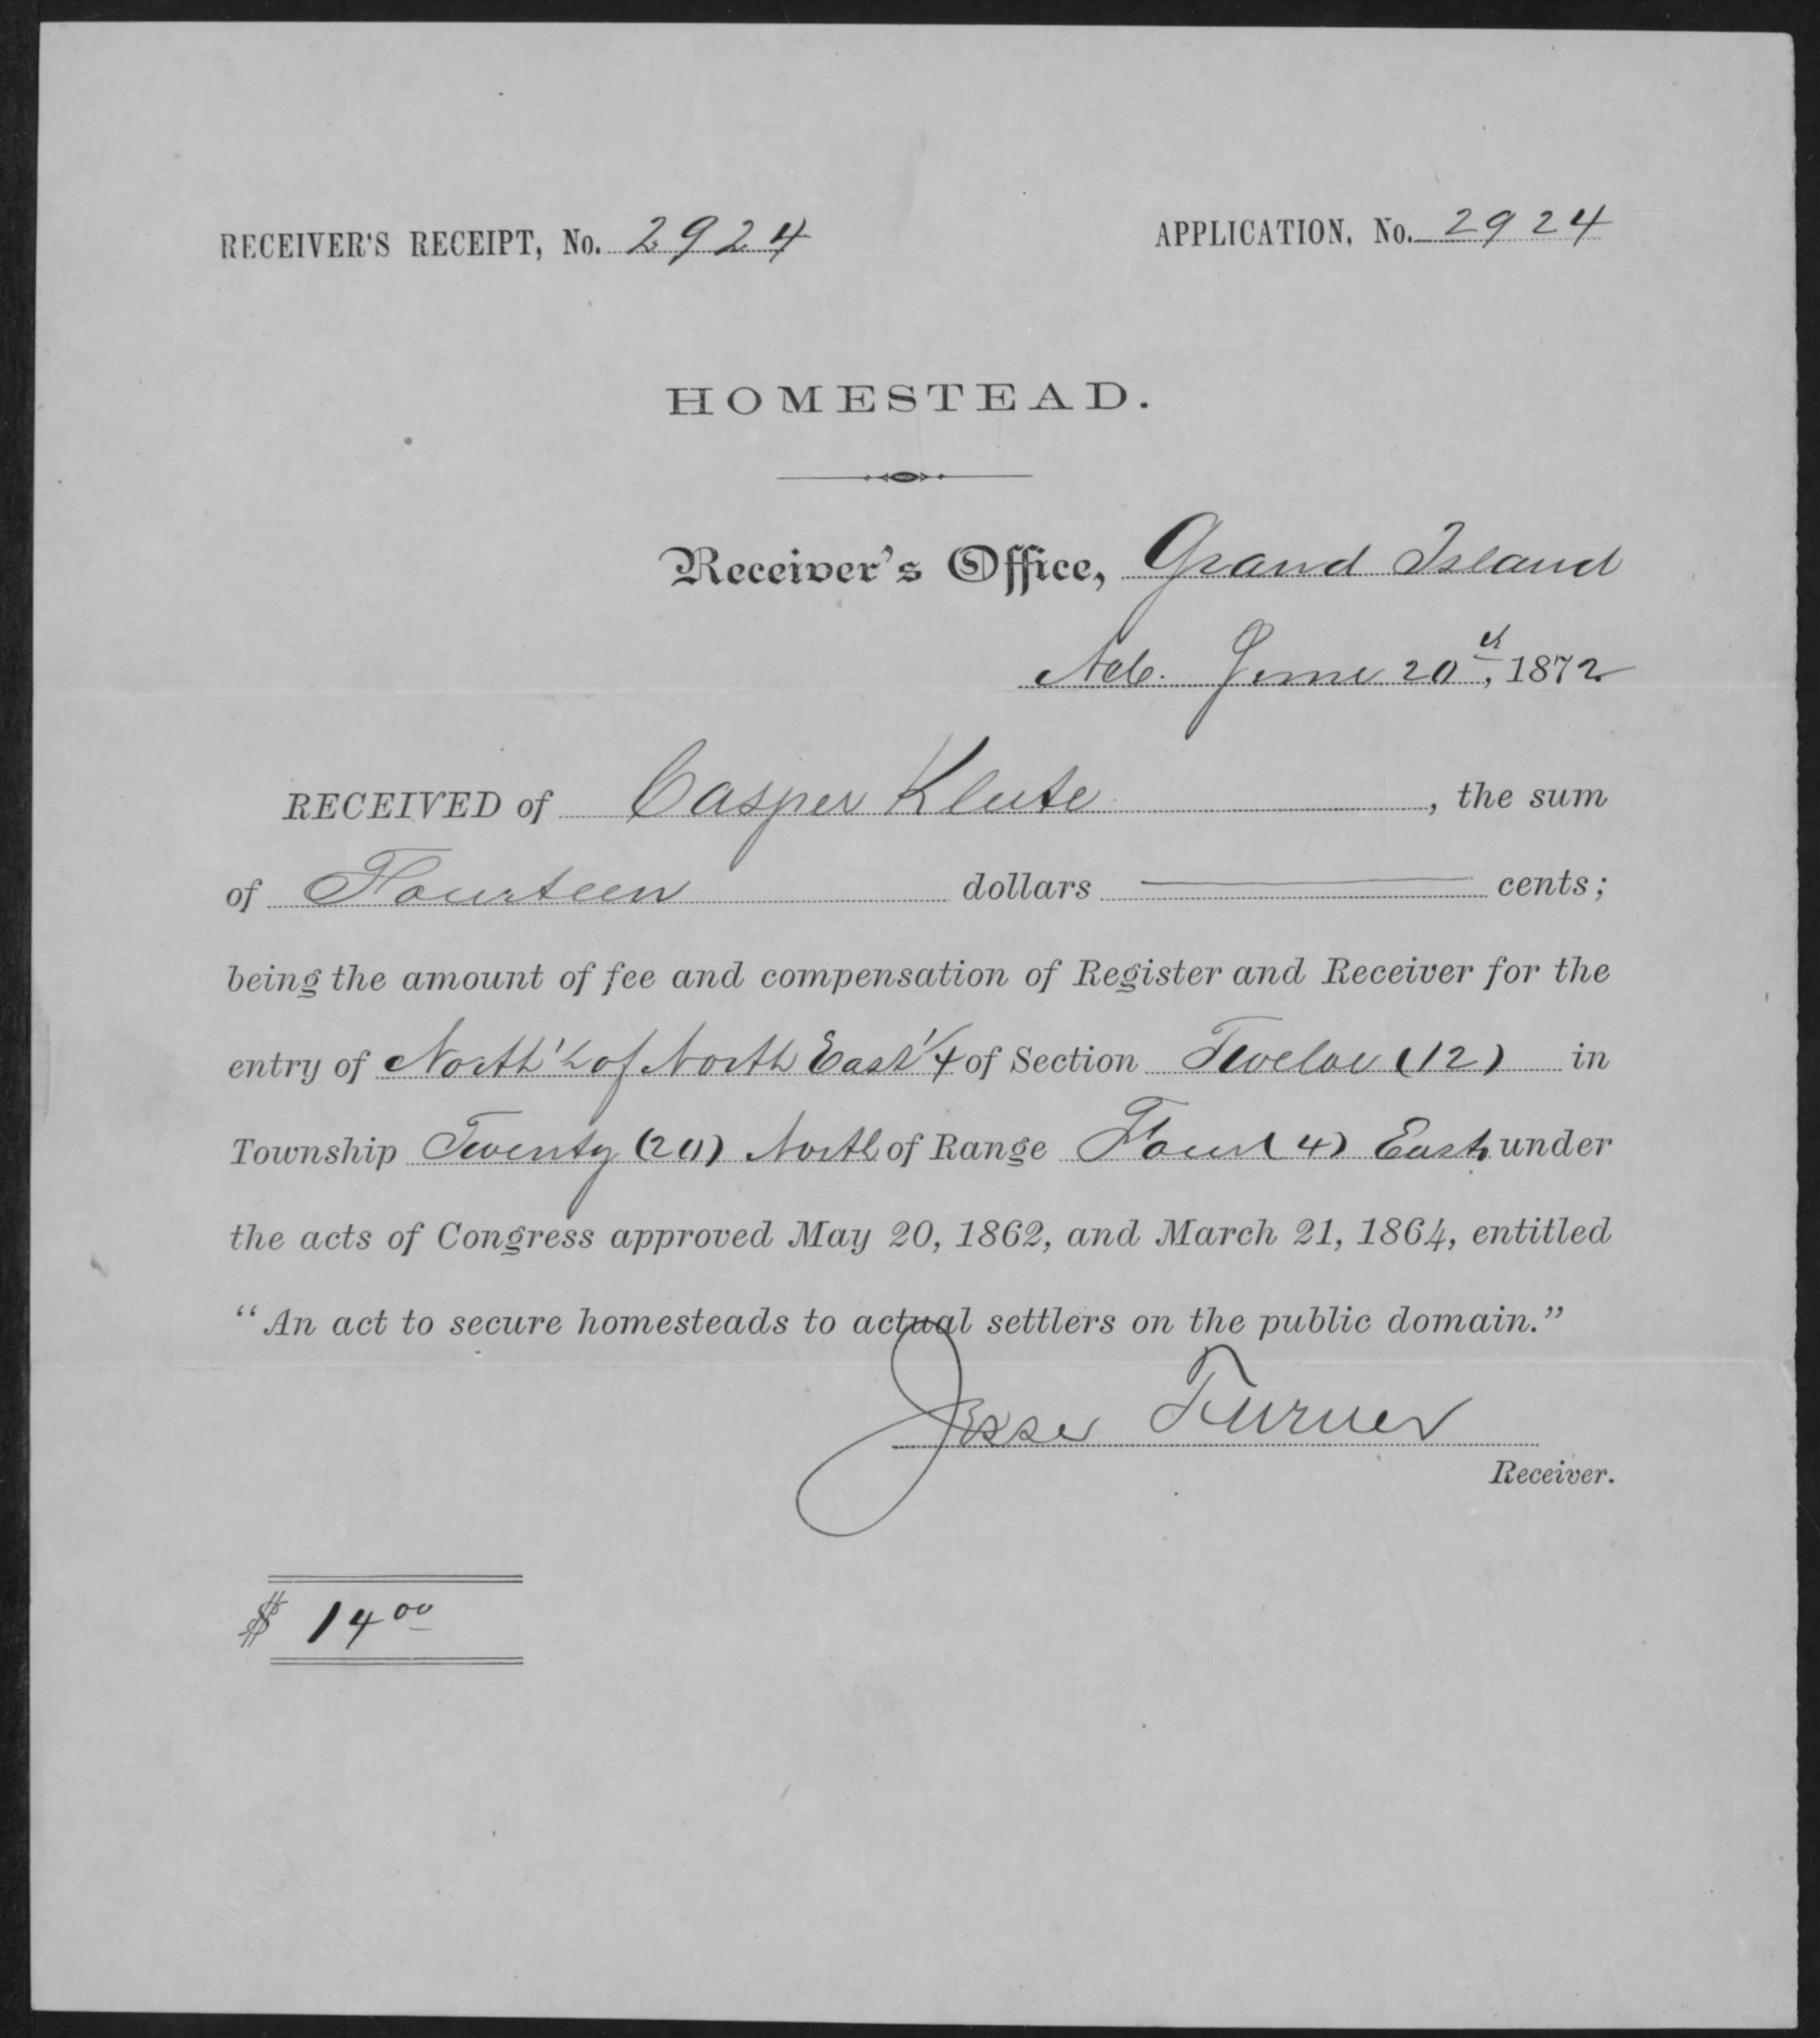 RECEIVER'S RECEIPT, No. 2924
APPLICATION, No. 2924
HOMESTEAD.
Receiver's Office, Grand Island
Neb. June 20th, 1872
RECEIVED of Casper Klute, the sum
of Fourteen dollars — cents;
being the amount of fee and compensation of Register and Receiver for the
entry of North ½ of North East ¼ of Section Twelve (12) in
Township Twenty (20) North of Range Four (4) East under
the acts of Congress approved May 20, 1862, and March 21, 1864, entitled
"An act to secure homesteads to actual settlers on the public domain."
Jesse Turner
Receiver.
$ 14 00